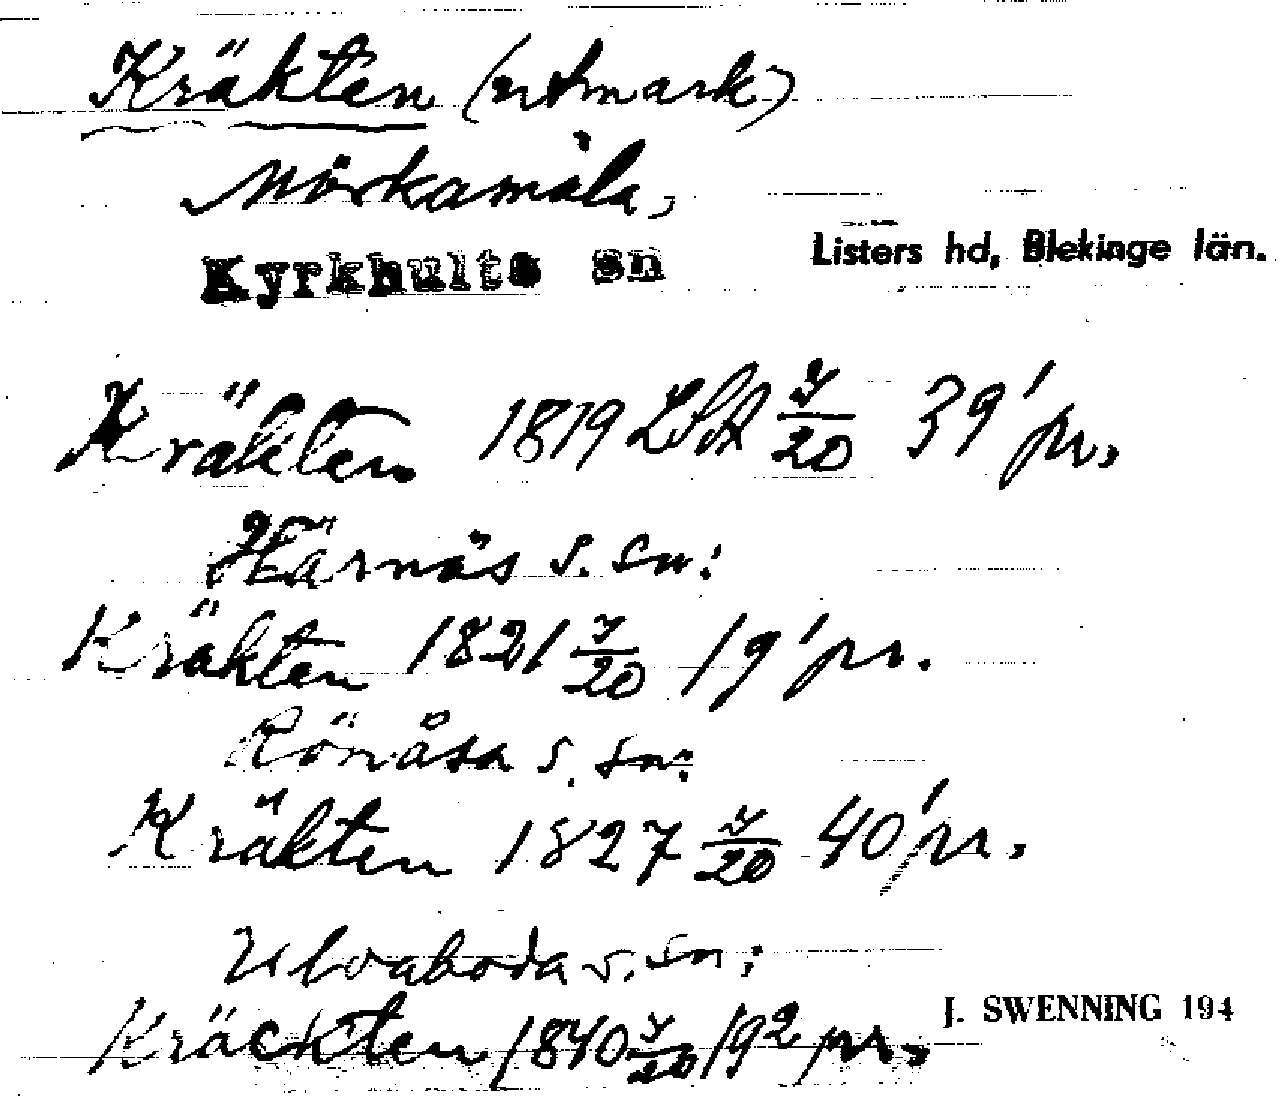 Kräkten (utmark)
Mörkamåla,
Kyrkhults sn
Listers hd, Blekinge län.
Kräkten 1819 LSA 7/20 39' pr.
Härnäs s. sn:
Kräkten 1821 7/20 19' pr.
Rönåsa s. sn:
Kräkten 1827 7/20 40' pr.
Ulvaboda s. sn:
Kräckten 1840 7/20 19² pr.
J. SWENNING 194